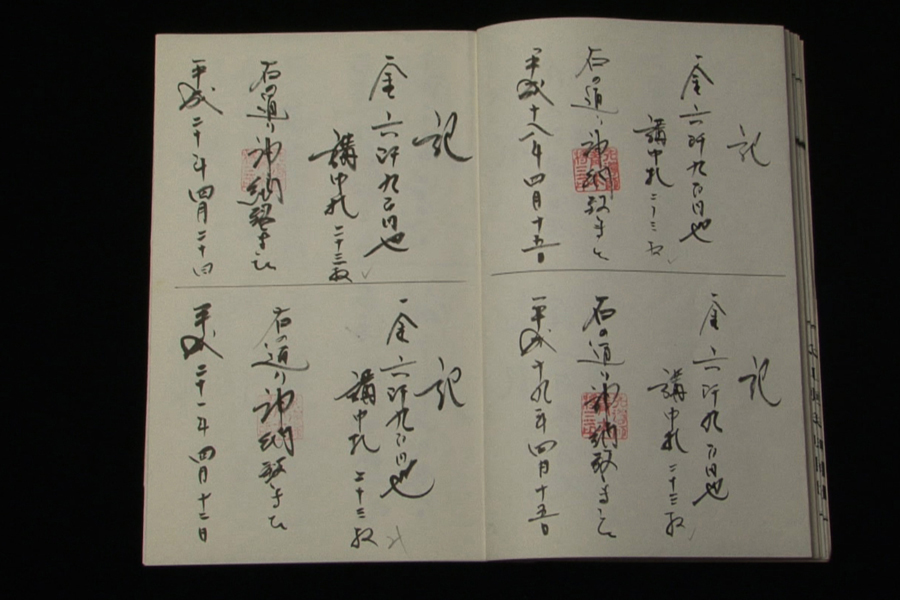 記
一金 六阡九百円也
講中札 二十三枚
右の通り神納致す也
平成十八年四月十五日
記
一金 六阡九百円也
講中札 二十三枚
右の通り神納致す也
平成十九年四月十五日
記
一金 六阡九百円也
講中札 二十三枚
右の通り神納致す也
平成二十年四月二十日
記
一金 六阡九百円也
講中札 二十三枚
右の通り神納致す也
平成二十一年四月十二日